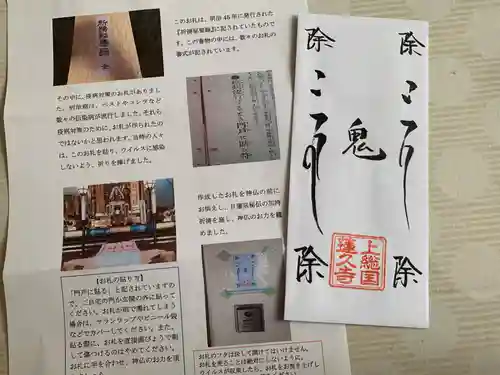 このお札は、明治45年に発行された
『祈祷秘蜜鏡』に記されていたもので
す。この書物の中には、数々のお札の
書式が記されています。
その中に、疫病対策のお札がありまし
た。明治期は、ペストやコレラなど
数々の伝染病が流行しました。それら
疫病対策のために、お札が作られたの
ではないかと思われます。当時の人々
は、このお札を貼り、ウイルスに感染
しないよう、祈りを捧げました。
作成したお札を神仏の前に
お供えし、日蓮宗秘伝の加持
祈祷を施し、神仏のお力を籠
めました。
【お札の貼り方】
「門戸に貼る」と記されていますの
で、ご自宅の門か玄関の外に貼って
ください。お札が雨で濡れてしまう
場合は、サランラップやビニール袋
などでカバーしてください。また、
貼る際に、お札を直接画びょうで刺
して傷つけるのはやめてください。
お札に手を合わせ、神仏のお力を頂
お札のフタは決して開けてはいけません。
お札を売ることは絶対にしないように。
ウイルスが収束したら、お札をお焚き上げし
除
除
鬼
除
除
上総国
蓮久寺